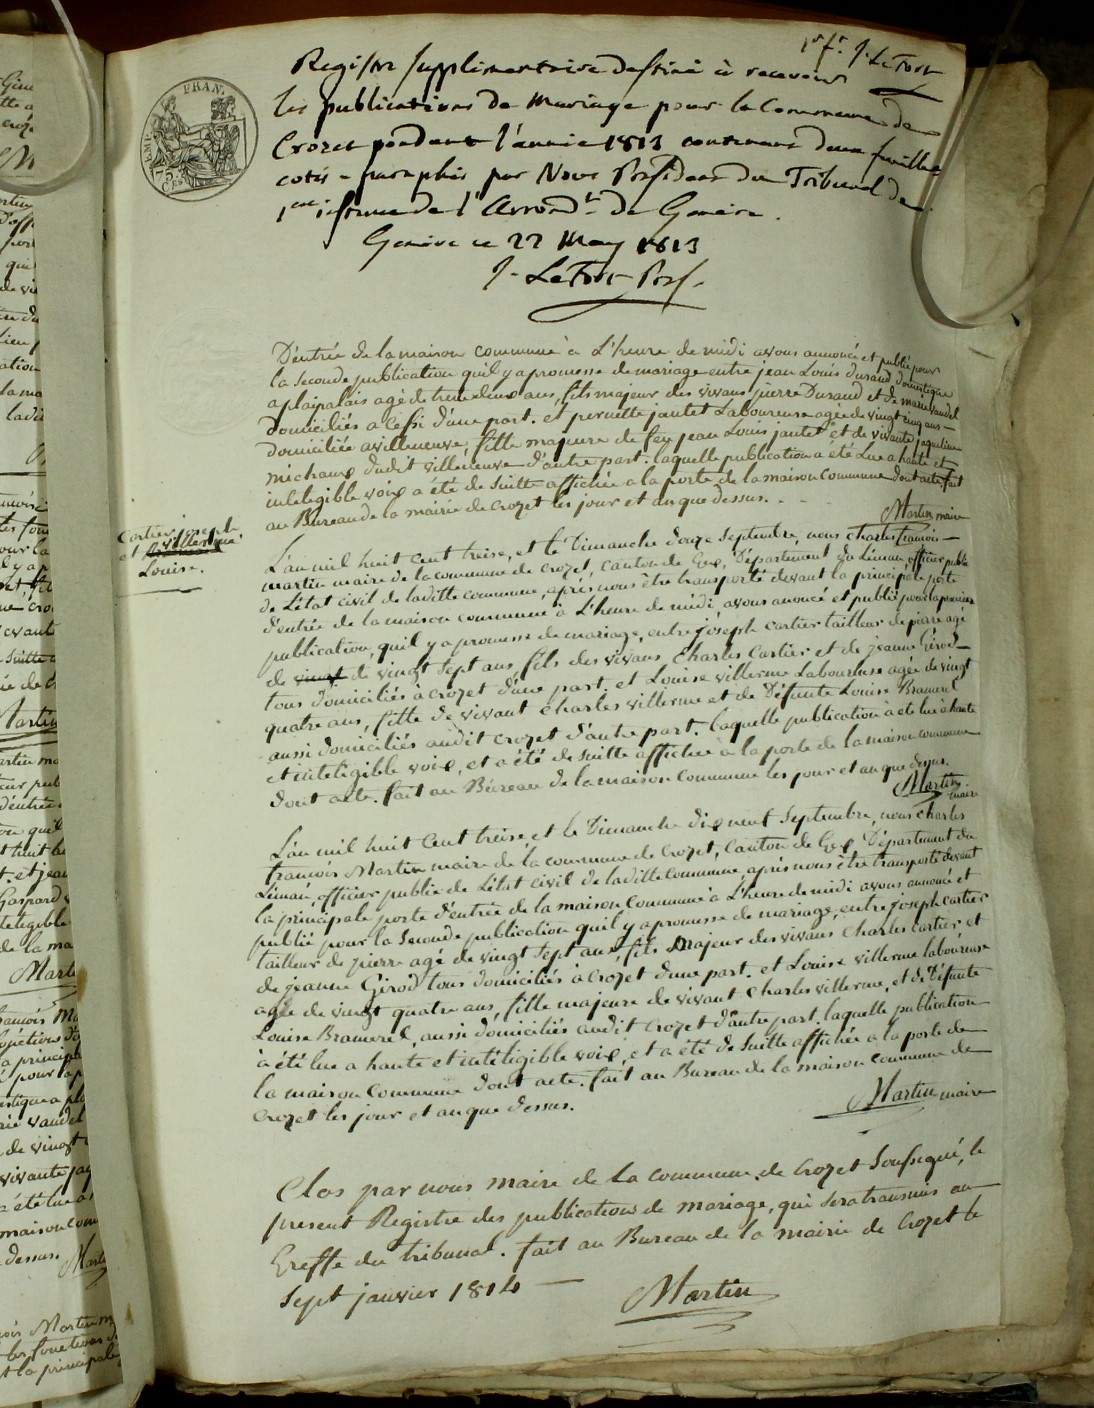 1er ft. J. LeFort
Registre supplimentaire destiné à recevoir
les publications de Mariage pour la Commune de
Crozet pendant l'année 1813 contenant deux feuilles
cotés paraphés par Nous Président du Tribunal de
1ere instance de l'Arrondt. de Genève.
Genève ce 22 May 1813
J. LeFort Pres.
EMP. FRAN.
75 Ces
D'entrée de la maison commune à L'heure de midi avons annoncé et publié pour
la seconde publication qu'il y a promesse de mariage entre jean Louis durand domestique
a plainpalais agé de trente deux ans, fils majeur des vivans pierre Durand et de marie vaudel
domiciliés à Cessi d'une part. et pernette jantet Laboureuse agée de vingt cinq ans
domiciliée a villeneuve, fille majeure de feu jean Louis jantet et de vivante jaqueline
michaux dudit villeneuve d'autre part. laquelle publication a été Lue a haute et
inteligible voix a été de suitte affichée a la porte de la maison commune dont acte. fait
au Bureau de la mairie de crozet les jour et an que dessus.
Martin maire
Cartier joseph
et villerme
Louise.
L'an mil huit cent treise, et le Dimanche douze Septembre, nous charles françois
martin maire de la commune de crozet, canton de Gex, Département du Léman, officier public
de L'état civil de laditte commune, après nous être transporté devant la principale porte
d'entrée de la maison commune à L'heure de midi, avons anoncé et publié pour la premiere
publication, qu'il y a promesse de mariage, entre joseph cartier tailleur de pierre agé
de vingt de vingt sept ans, fils des vivans Charles Cartier et de jeanne Girod
tous domiciliés à crozet d'une part. et Louise villerme Laboureuse agée de vingt
quatre ans, fille de vivant Charles villerme et de Défunte Louise Bramerel
aussi domiciliés audit crozet d'autre part. laquelle publication à été lue à haute
et inteligible voix, et a été de suitte affichée à la porte de la maison commune
dont acte. fait au Bureau de la maison Commune les jour et an que dessus.
Martin maire
L'an mil huit Cent treise, et le Dimanche dix neuf Septembre, nous charles
françois Martin maire de la commune de Crozet, Canton de Gex, Département du
Léman, officier public de L'état civil de laditte commune, après nous être transporté devant
la principale porte d'entrée de la maison Commune à L'heure de midi avons annoncé et
publié pour la seconde publication qu'il y a promesse de mariage, entre joseph cartier
tailleur de pierre agé de vingt sept ans, fils Majeur des vivans Charles Cartier, et
de jeanne Girod tous domiciliés à crozet d'une part. et Louise villerme laboureuse
agée de vingt quatre ans, fille majeure de vivant Charles villerme, et de Défunte
Louise Bramerel, aussi domiciliés audit crozet d'autre part. laquelle publication
à été lue a haute et inteligible voix, et a été de suitte affichée a la porte de
la maison Commune dont acte. fait au Bureau de la maison commune de
Crozet les jour et an que dessus.
Martin maire
Clos par nous maire de la commune de Crozet Soussigné, le
present Registre des publications de mariage, qui sera transmis au
Greffe du tribunal. fait au Bureau de la mairie de Crozet le
sept janvier 1814
Martin